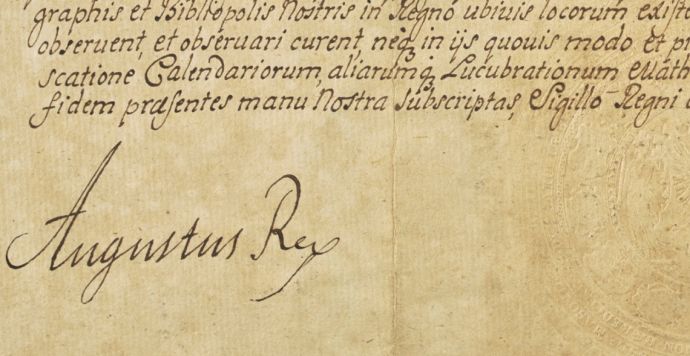 graphis et Bibliopolis Nostris in Regno ubivis locorum existe
observent, et observari curent, neq; in ijs quovis modo et pr
scatione Calendariorum, aliarumq; Lucubrationum Math
fidem præsentes manu Nostra Subscriptas, Sigillo Regni
Augustus Rex